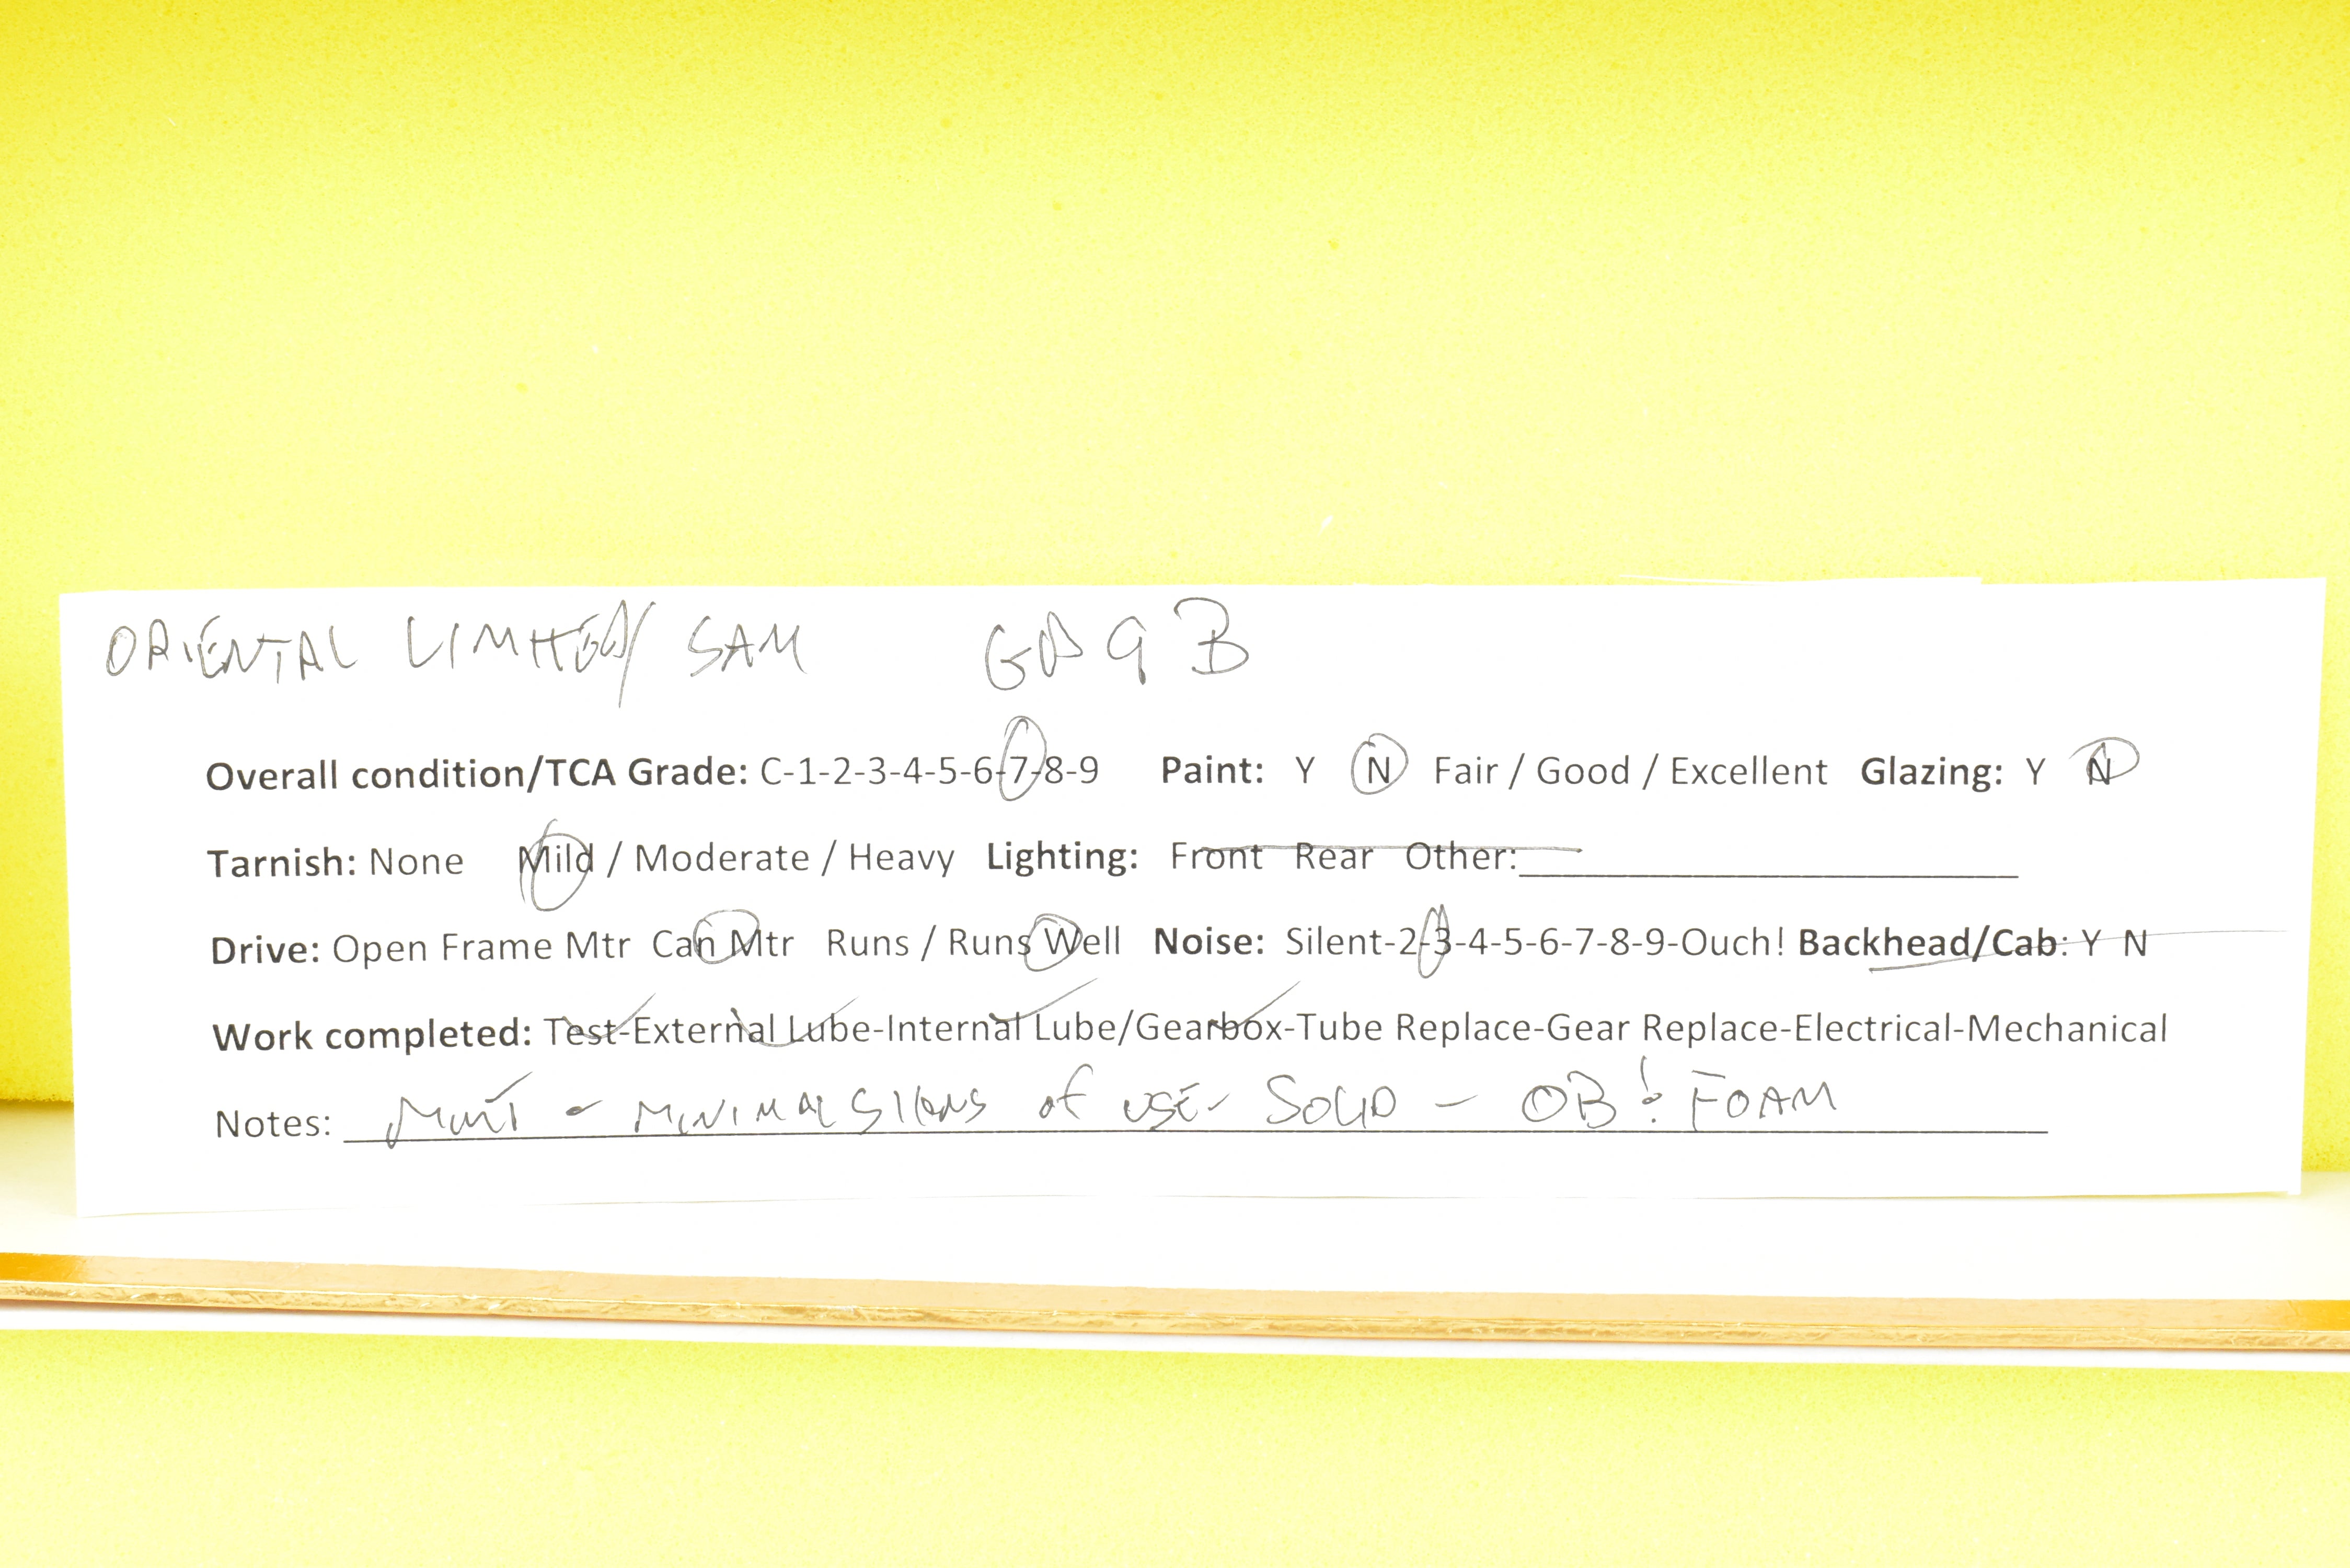 ORIENTAL LIMITED/ SAM GP9 B
Overall condition/TCA Grade: C-1-2-3-4-5-6-7-8-9 Paint: Y N Fair / Good / Excellent Glazing: Y N
Tarnish: None Mild / Moderate / Heavy Lighting: Front Rear Other:
Drive: Open Frame Mtr Can Mtr Runs / Runs Well Noise: Silent-2-3-4-5-6-7-8-9-Ouch! Backhead/Cab: Y N
Work completed: Test-External Lube-Internal Lube/Gearbox-Tube Replace-Gear Replace-Electrical-Mechanical
Notes: MINT - MINIMAL SIGNS of USE - SOLID - OB & FOAM